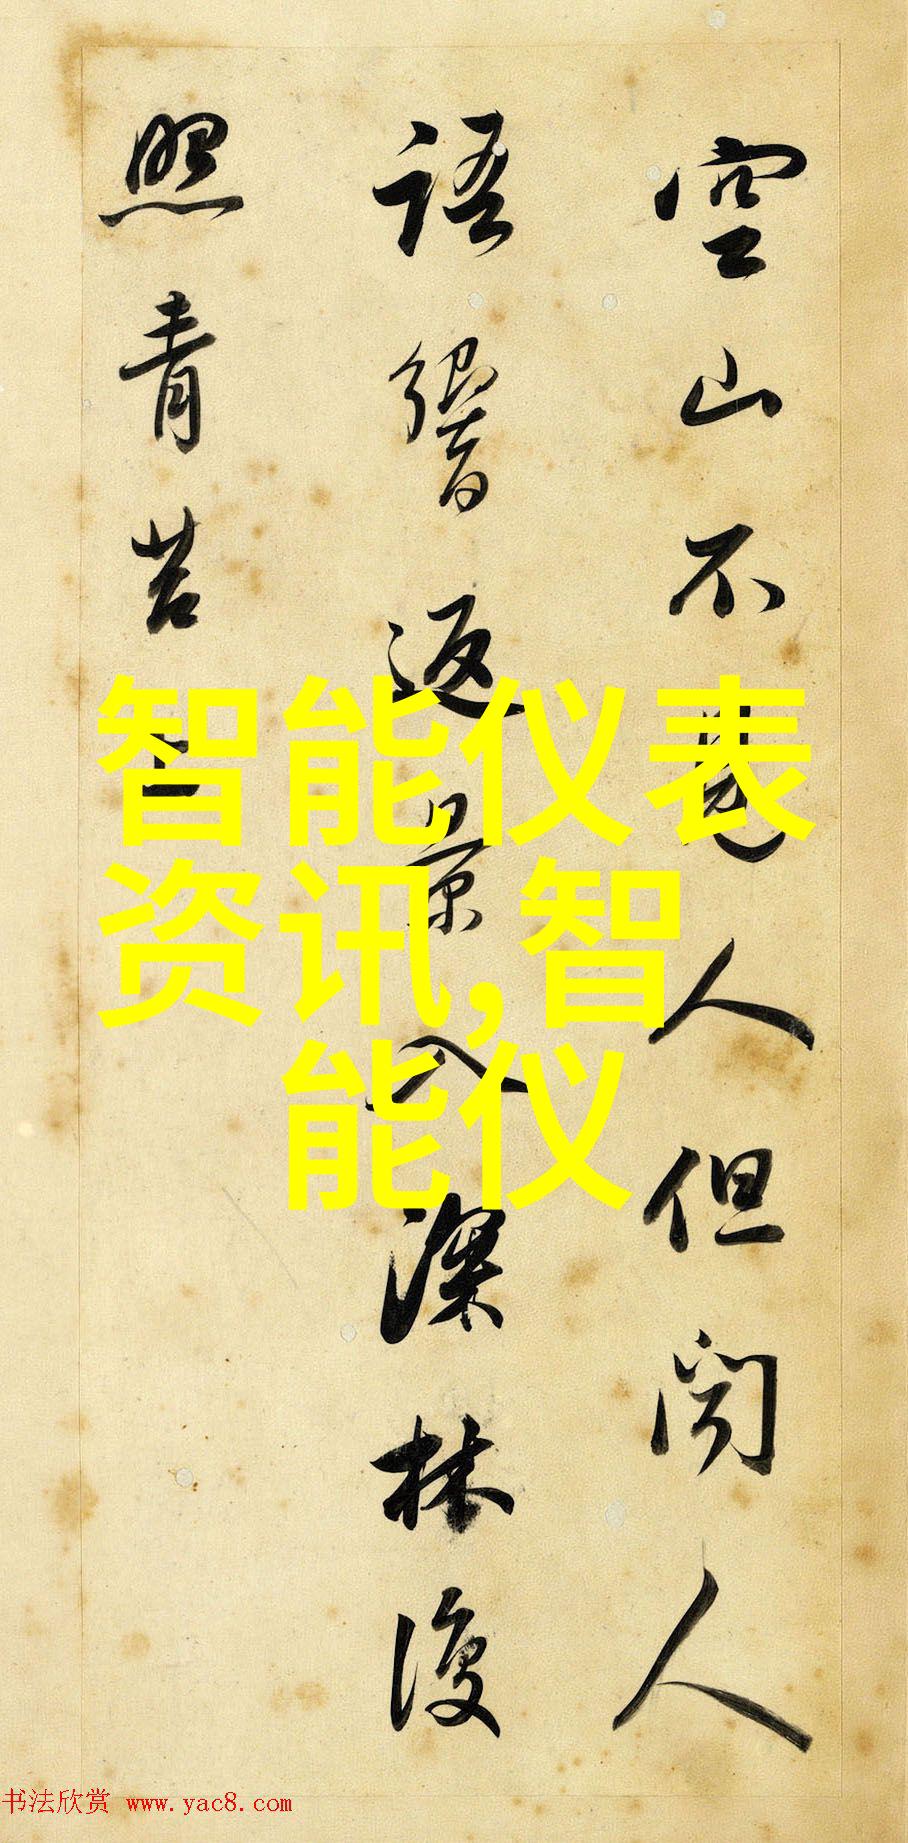 空山不見人但聞人
語響返景入深林復
照青苔上
智能仪表
资讯,智
能仪
书法欣赏 www.yac8.com